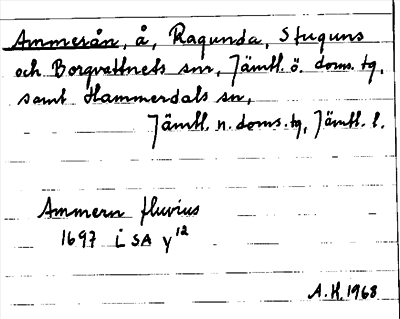 Ammerån, å, Ragunda, Stuguns
och Borgvattnets snr, Jämtl. ö. doms. tg,
samt Hammerdals sn,
Jämtl. n. doms. tg, Jämtl. l.
Ammern fluvius
1697 i SA γ¹²
A.H. 1968